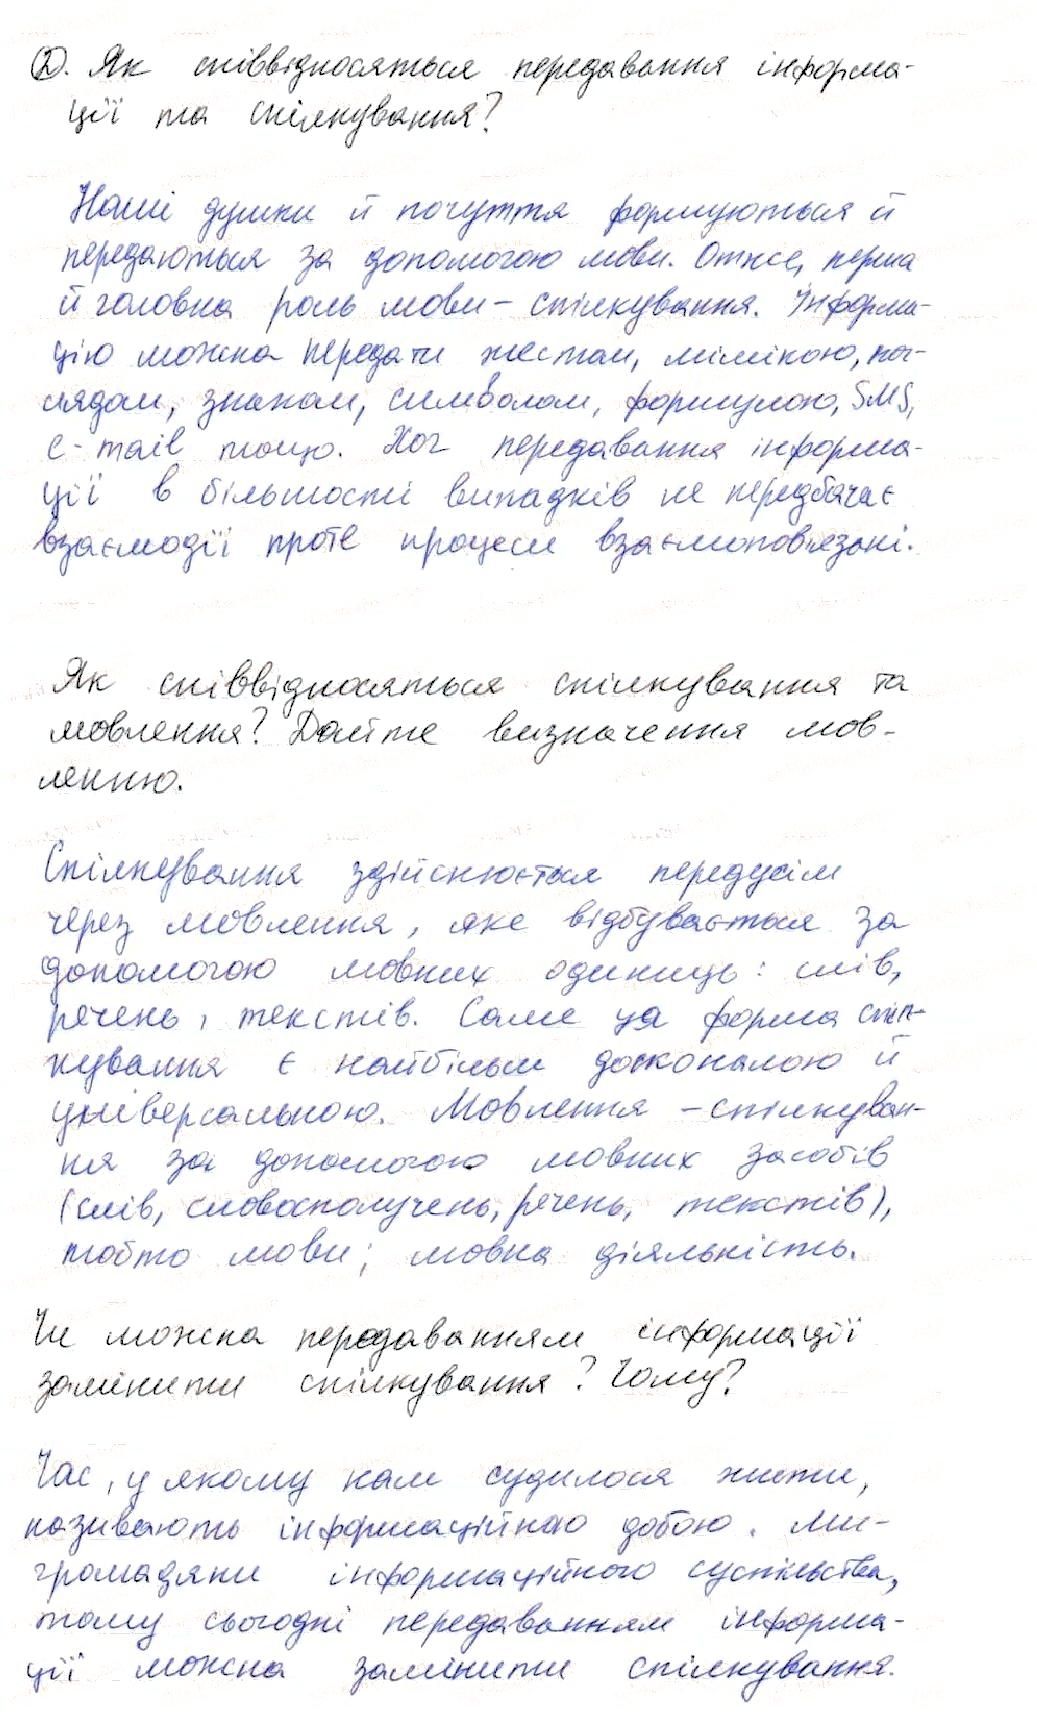 2. Як співвідносяться передавання інформа-
ції та спілкування?
Наші думки й почуття формуються й
передаються за допомогою мови. Отже, перша
й головна роль мови – спілкування. Інформа-
цію можна передати жестом, мімікою, пог-
лядом, знаком, символом, формулою, SMS,
e-mail тощо. Хоч передавання інформа-
ції в більшості випадків не передбачає
взаємодії проте процеси взаємопов'язані.
Як співвідносяться спілкування та
мовлення? Дайте визначення мов-
ленню.
Спілкування здійснюється передусім
через мовлення, яке відбувається за
допомогою мовних одиниць: слів,
речень, текстів. Саме ця форма спіл-
кування є найбільш досконалою й
універсальною. Мовлення – спілкуван-
ня за допомогою мовних засобів
(слів, словосполучень, речень, текстів),
тобто мови; мовна діяльність.
Чи можна передаванням інформації
замінити спілкування? Чому?
Час, у якому нам судилося жити,
називають інформаційною добою. Ми -
громадяни інформаційного суспільства,
тому сьогодні передаванням інформа-
ції можна замінити спілкування.